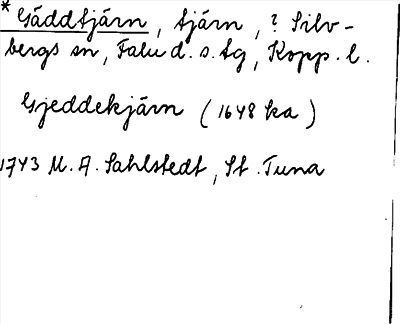 * Gäddtjärn, tjärn, ? Silv-
bergs sn, Falu d. s. tg, Kopp. l.
Gjeddekjärn (1648 ka)
1743 M. A. Sahlstedt, St. Tuna